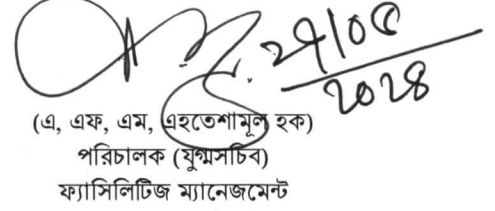 ২৭/০৫
২০২৪
(এ, এফ, এম, এহতেশামূল হক)
পরিচালক (যুগ্মসচিব)
ফ্যাসিলিটিজ ম্যানেজমেন্ট